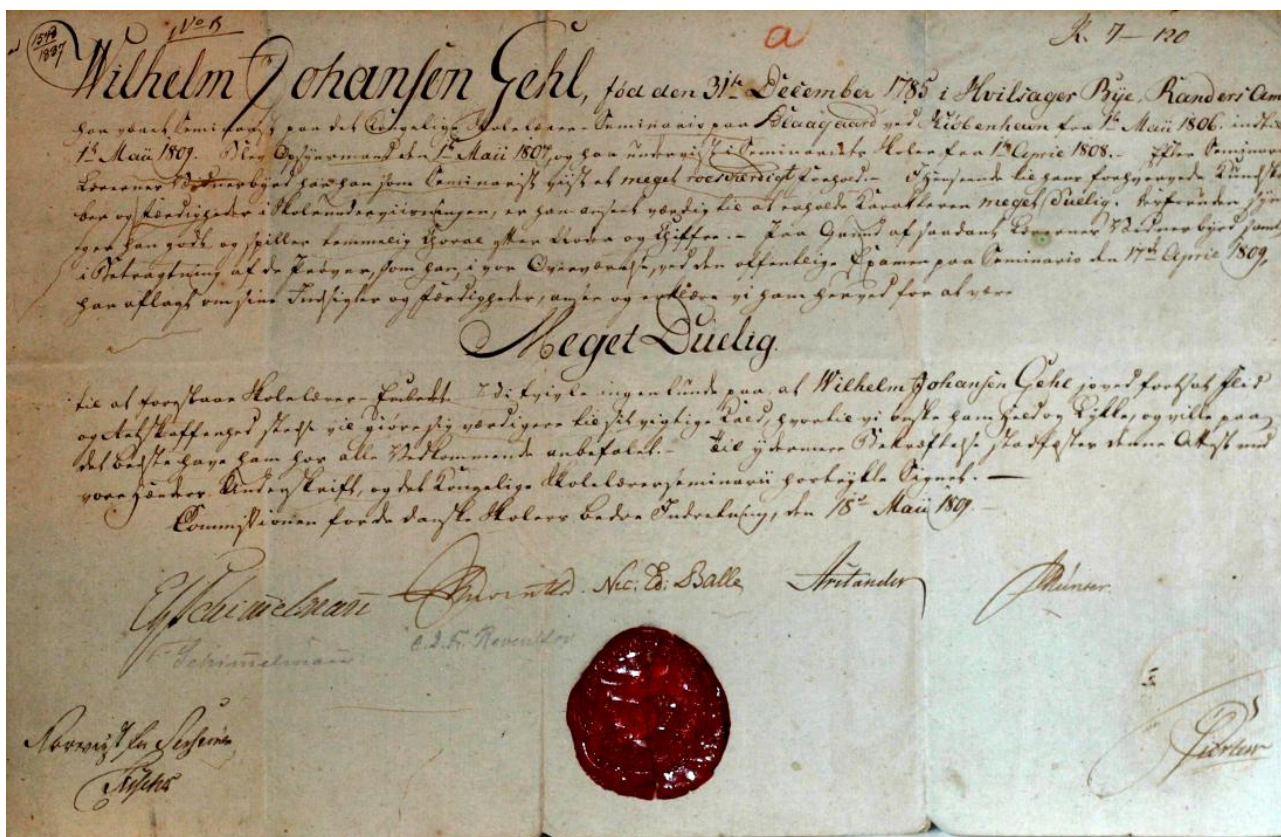 1578
1887
No B
a
K. 7–120
Wilhelm Johansen Gehl, fød den 31te December 1785 i Hvilsager Bye, Randers Am
har været Seminarist paa det Kongelige Skolelærer-Seminario paa Blaagaard ved Kiøbenhavn fra 1te Maii 1806. indtil
1te Maii 1809. Blev Opsyermand den 1te Maii 1807, og har underviist i Seminariets Skoler fra 1te April 1808. – Efter Seminarii
Lærernes Vidnesbyrd har han som Seminarist viist et meget roesværdigt Forhold. – I Henseende til hans forhvervede Kundska-
ber og Færdigheder i Skoleunderviisningen, er han anseet værdig til at erholde Karakteren meget Duelig. Desforuden syn-
ger han godt og spiller temmelig Choral efter Noder og Chiffre. – Paa Grund af saadant Lærernes Vidnesbyrd samt
i Betragtning af de Prøver, som han, i vor Overværelse, ved den offentlige Examen paa Seminario den 17de April 1809,
har aflagt om sine Indsigter og Færdigheder, ansee og erklære vi ham herved for at være
Meget Duelig.
til at forestaae Skolelærer-Embedet. Vi tvivle ingenlunde paa, at Wilhelm Johansen Gehl jo ved fortsat Flid
og Retskaffenhed stedse vil giøre sig værdigere til sit vigtige Kald, hvortil vi ønske ham Held og Lykke, og ville paa
det bedste have ham hos alle Vedkommende anbefalet. – Til ydermere Bekræftelse stadfæster denne Attest med
vore Hænders Underskrift, og det Kongelige Skolelærerseminarii hostrykte Signet. –
Commissionen for de danske Skolers bedre Indretning, den 18de Maii 1809. –
Schimmelmann Reventlo Nic: Ed: Balle Münter.
Schimmelmann C. D. Fr. Reventlov
Foreviist for Sessionen